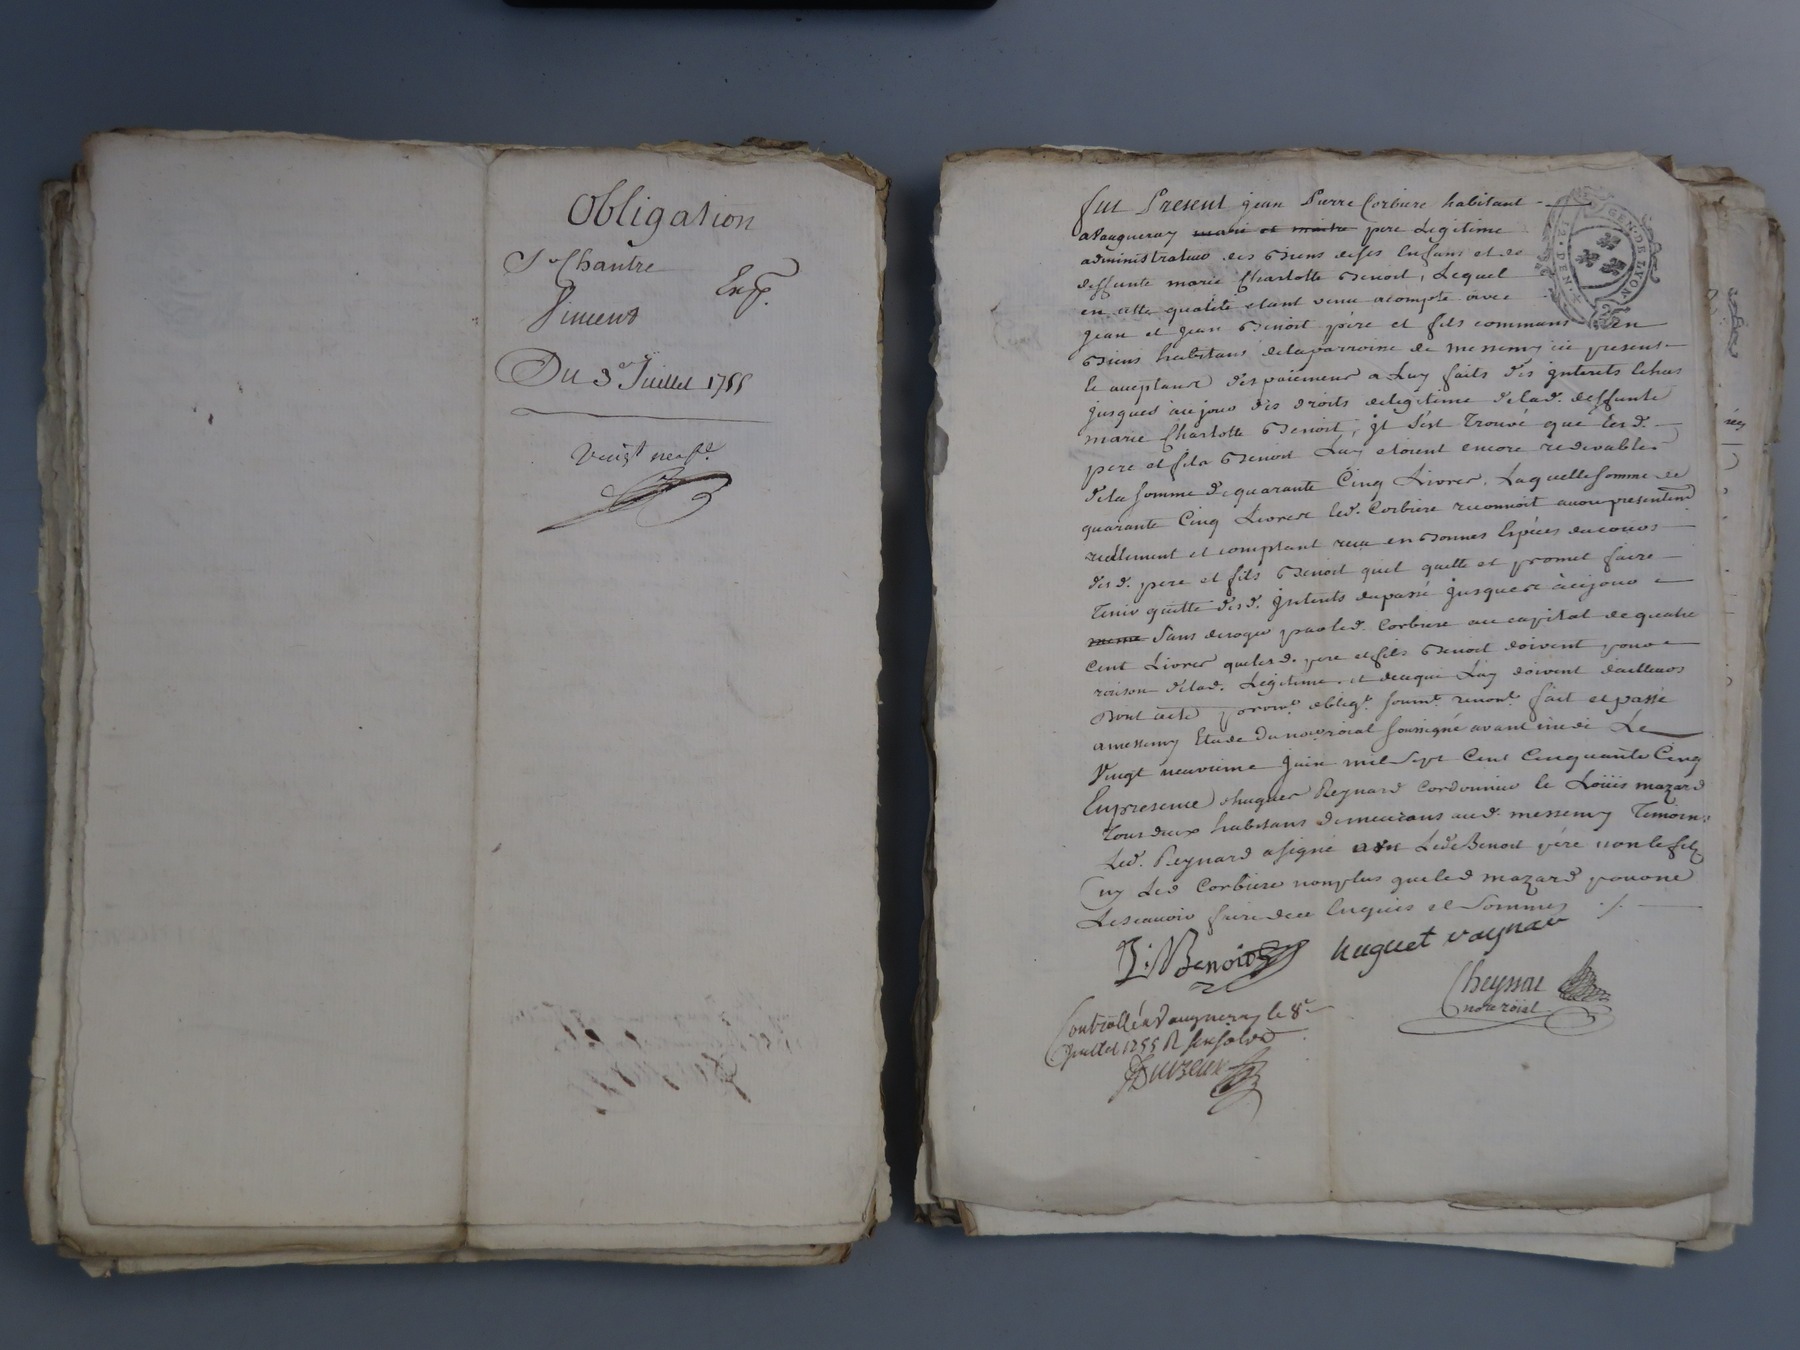 Obligation
Sr Chantre
Exp.
Vincent
Du 3e Juillet 1755
vingt neufe.
GEN. DE LYON
fut Present jean Pierre Corbiere habitant
a Vaugneray marié et maitre pere Legitime
administrateur des Biens de ses Enfans et de
deffunte marie Charlotte Benoit, Lequel
en cette qualité etant venu a compte avec
jean et jean Benoit pére et fils communs en
Biens habitans de la parroisse de messemy icy presents
le acceptants des paiements a Luy faits des jnterets échus
jusques a ce jour des droits de legitime de lad. deffunte
marie Charlotte Benoit, jl s'est Trouvé que lesd.
pere et fils Benoit Luy etoient encore redevables
de la somme de quarante Cinq Livres, Laquelle somme de
quarante Cinq Livres led. Corbiere reconnoit avoir presentemt
réellement et comptant reçu en Bonnes Espéces du cours
desd. pere et fils Benoit quil quitte et promet faire
Tenir quitte desd. jnterets du passé jusques à ce jour
meme sans deroger par led. Corbiere au capital de quatre
Cent Livres que lesd. pere et fils Benoit doivent pour
raison de lad. Legitime, et de ce que Luy doivent dailleurs
Dont acte promt. obligt. soumt. renont. fait et passé
a messemy Etude du nore roial soussigné avant midi Le
Vingt neuvieme juin mil Sept Cent Cinquante Cinq
En presence d'hugues Reynard Cordonnier le Loüis mazard
Tous deux habitans demeurans aud. messemy Temoins
Led. Reynard a signé avec Led. Benoit pére non le fils
ny Led Corbiere non plus que led mazard pour ne
Le scavoir faire de ce Enquis et Sommés ./.
J: Benoit huguet raynar
Cheyssac
nore roial
Controllé a Vaugneray le 8e
Juillet 1755 R six sols